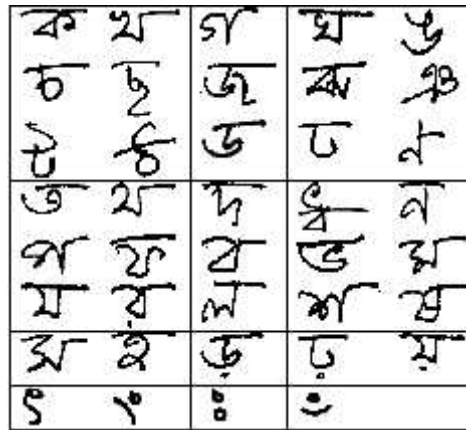 ক খ গ ঘ ঙ
চ ছ জ ঝ ঞ
ট ঠ ড ঢ ণ
ত থ দ ধ ন
প ফ ব ভ ম
য র ল শ ষ
স হ ড় ঢ় য়
ৎ ং ঃ ঁ